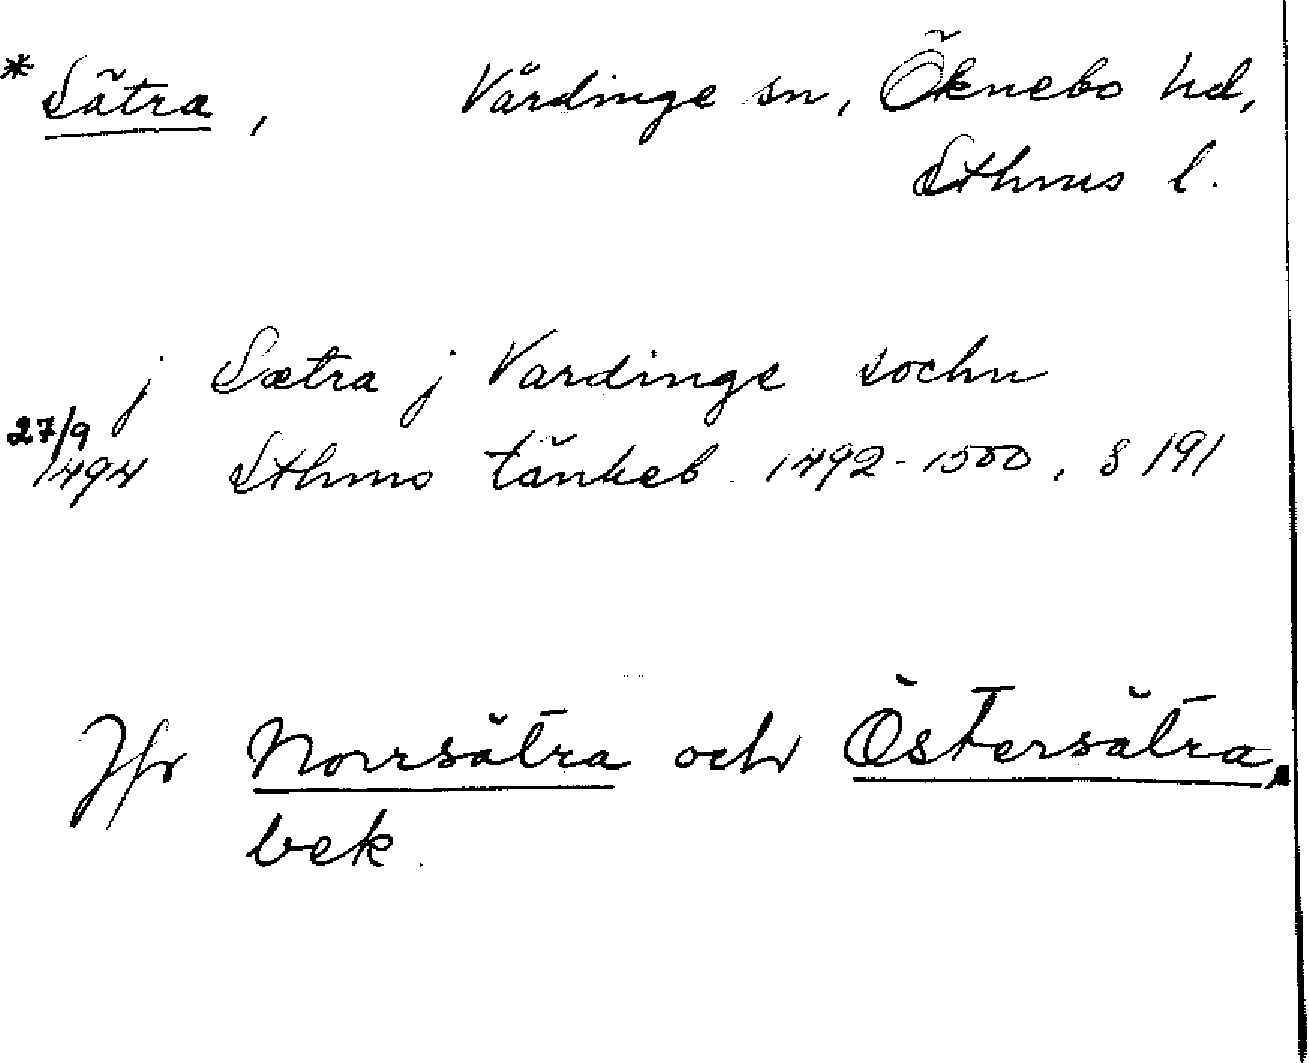 * Sätra, Vårdinge sn, Öknebo hd,
Sthms l.
j Sætra j Vardinge sochn
27/9 1494 Sthms tänkeb. 1492-1500, s 191
Jfr Norrsätra och Östersätra,
bek.